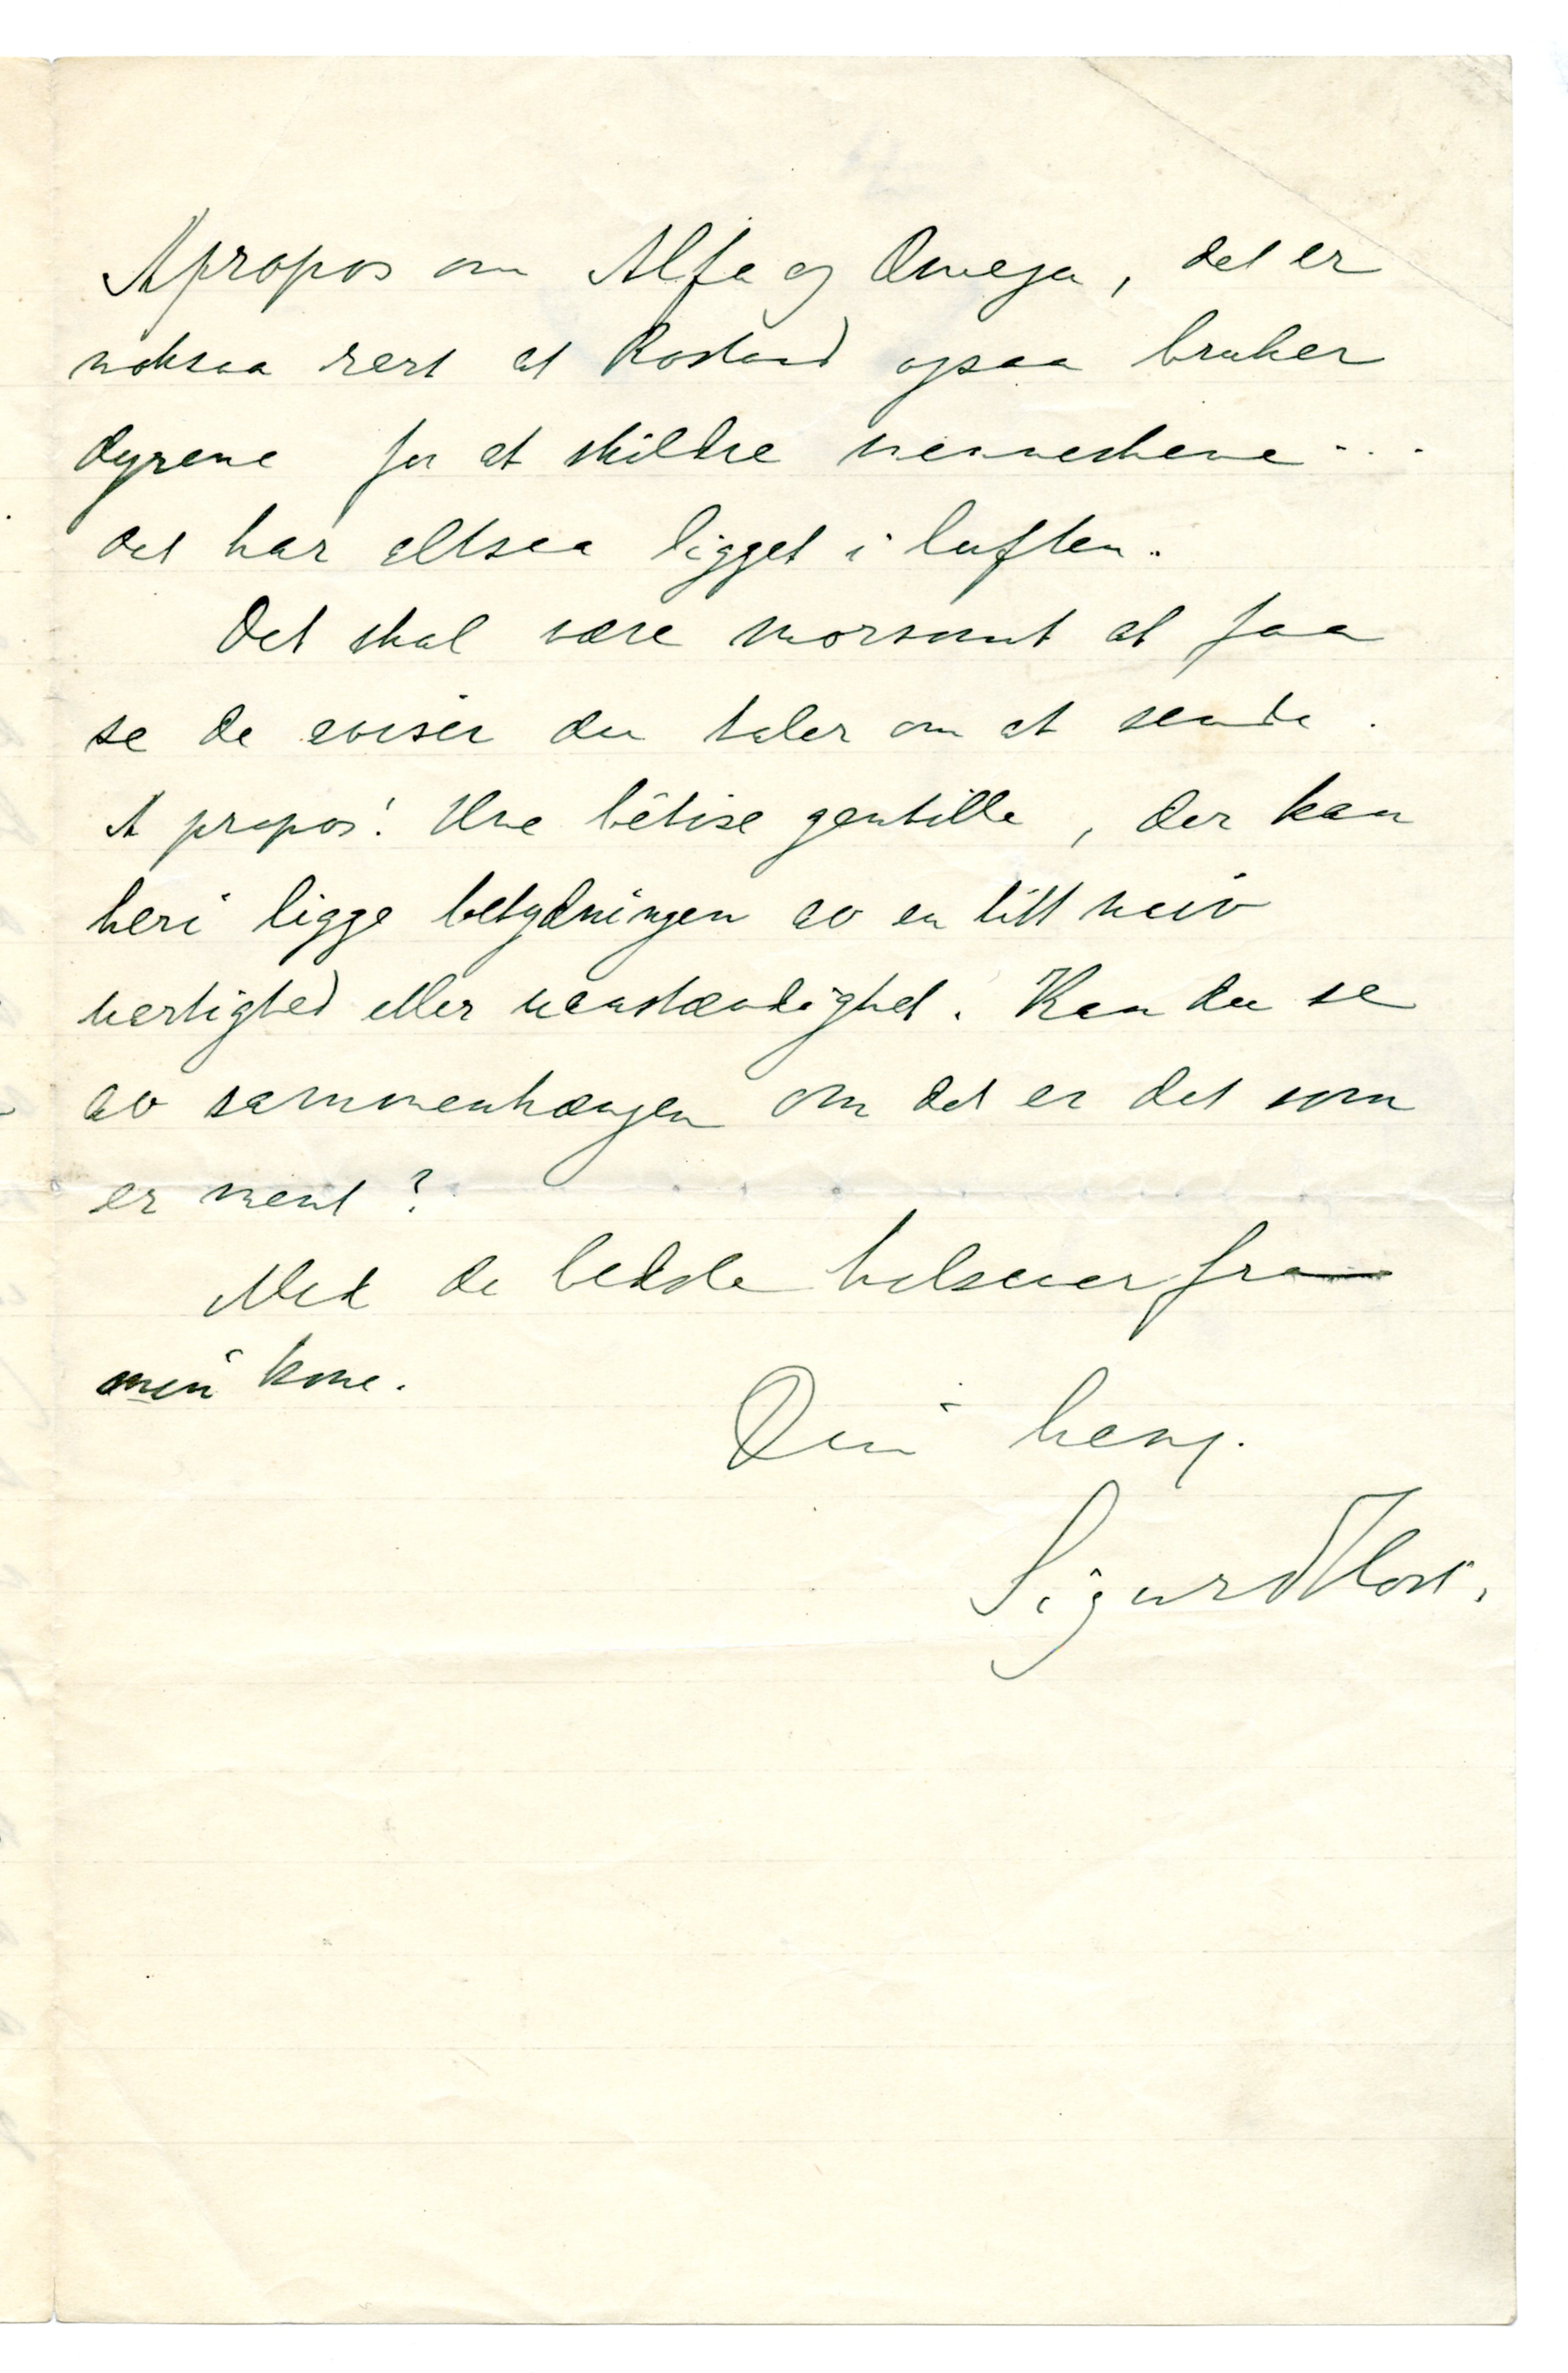 Apropos om Alfa og Omega, det er
noksaa rart at Rostand ogsaa bruker
dyrene for at skildre menneskene...
det har altsaa ligget i luften.
Det skal være morsomt at faa
se de aviser du taler om at sende.
A propos! Une bêtise gentille, der kan
heri ligge betydningen av en litt naiv
uartighed eller uanstændighet. Kan du se
av sammenhængen om det er det som
er ment?
Med de bedste hilsener fra
min kone.
Din heng.
Sigurd Høst.